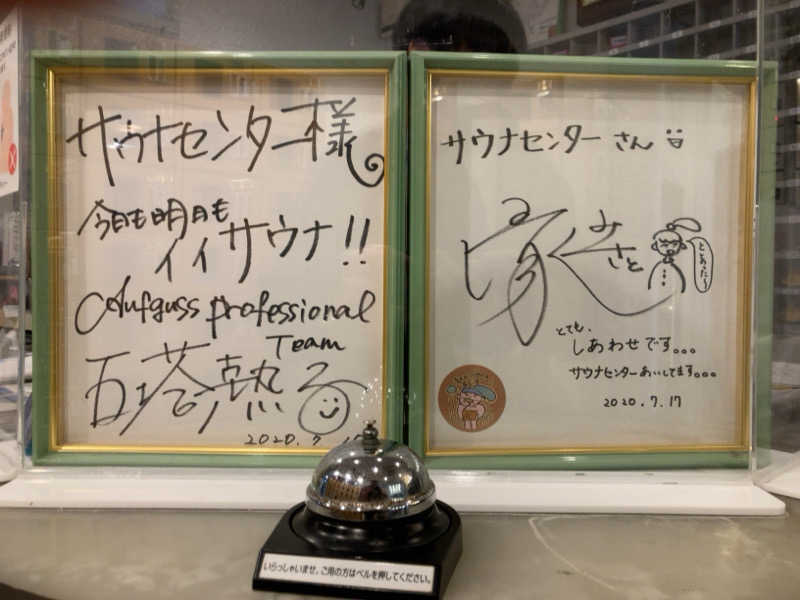 サウナセンター様
今日も明日も
イイサウナ!!
Aufguss professional
Team
五塔熱子
2020.7.17
サウナセンターさん
とといったへ
とても、
しあわせです。。。
サウナセンターあいしてます。。。
2020.7.17
いらっしゃいませ。ご用の方はベルを押してください。